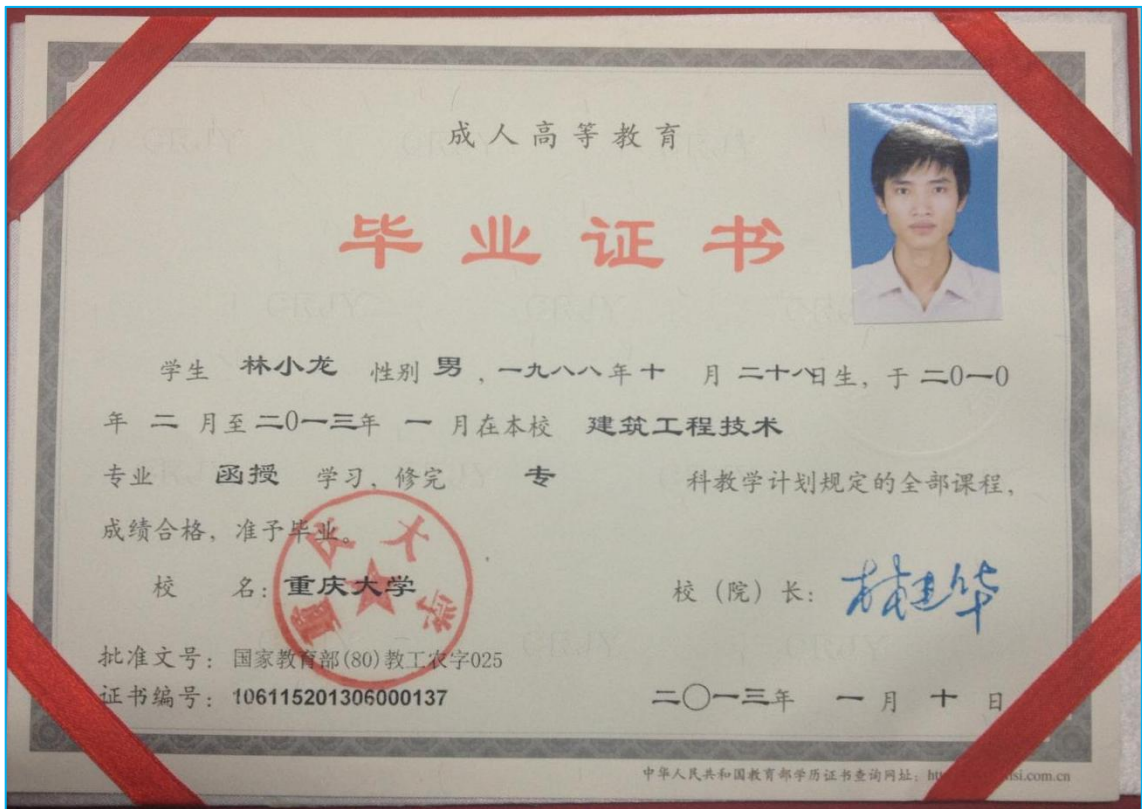 成人高等教育
毕业证书
学生 林小龙 性别 男，一九八八年十 月 二十八日生，于 二0一0
年 二 月至二0一三年 一 月在本校 建筑工程技术
专业 函授 学习，修完 专 科教学计划规定的全部课程，
成绩合格，准予毕业。
重庆大学
校 名：重庆大学 校（院）长：
批准文号：国家教育部(80)教工农字025
证书编号：106115201306000137 二〇一三年 一 月 十 日
中华人民共和国教育部学历证书查询网址：